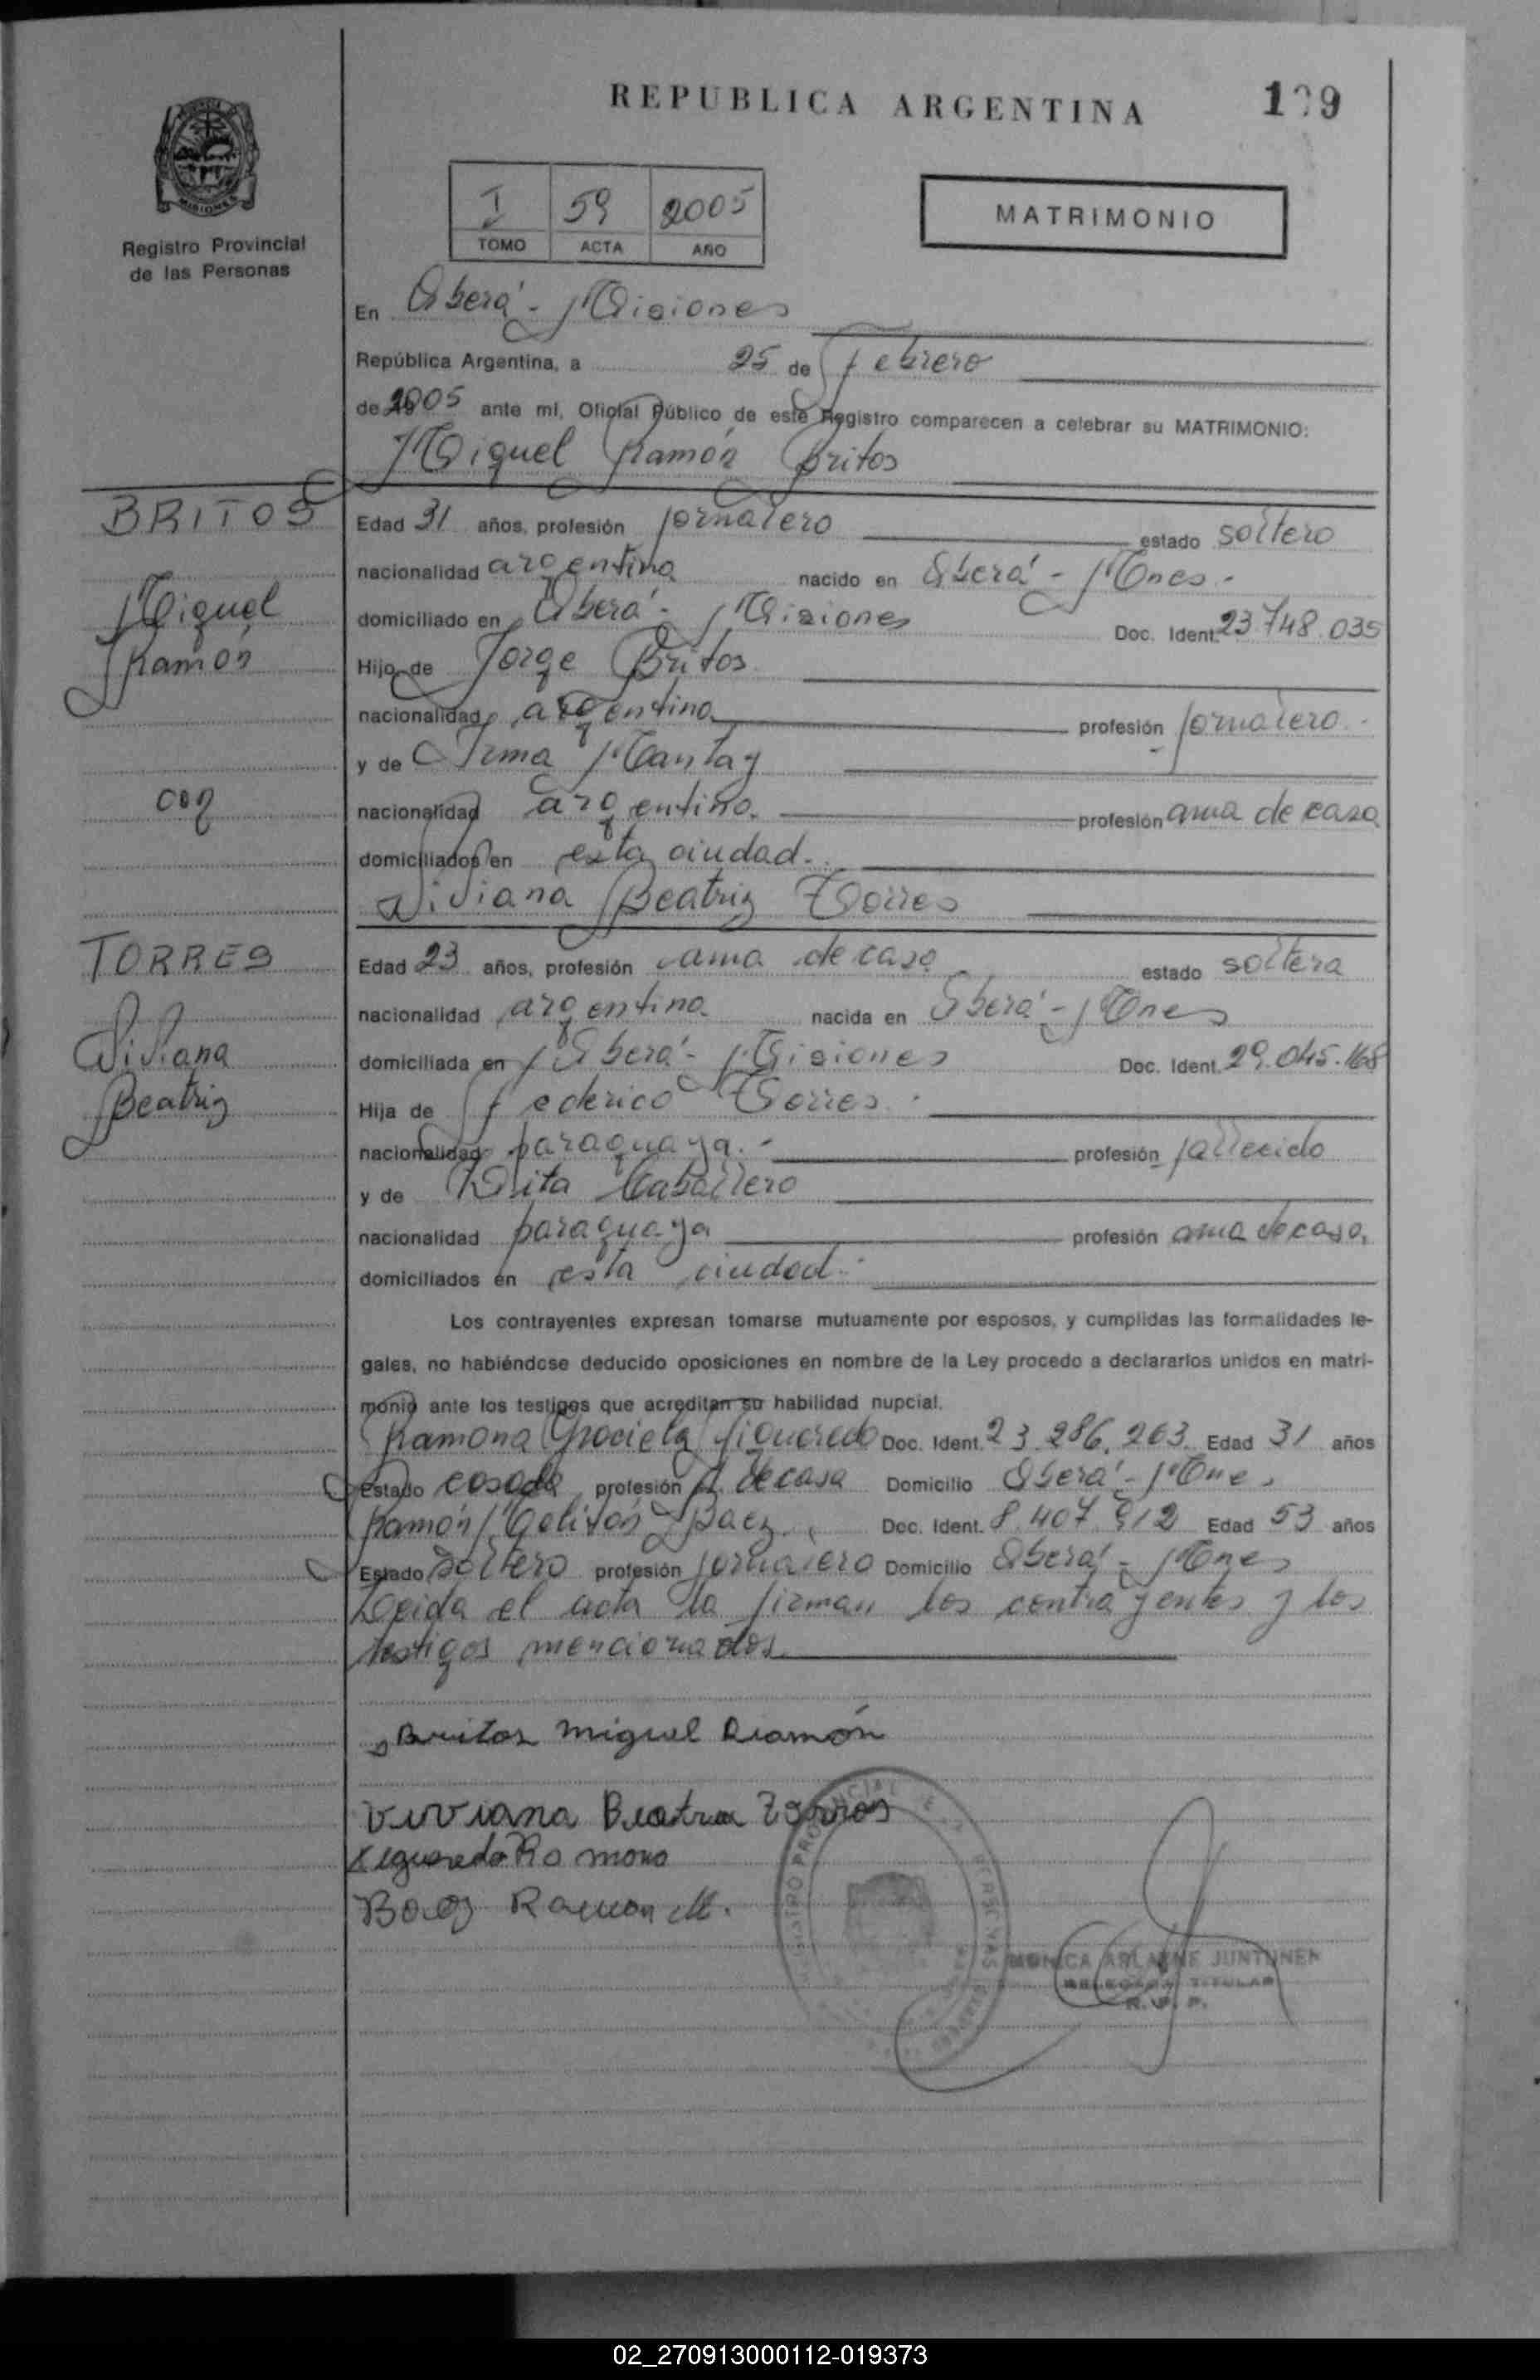 REPUBLICA ARGENTINA
MISIONES
Registro Provincial
de las Personas
I 59 2005
TOMO ACTA AÑO
MATRIMONIO
En Oberá - Misiones
República Argentina, a 25 de Febrero
de 2005 ante mí, Oficial Público de este Registro comparecen a celebrar su MATRIMONIO:
Miguel Ramón Britos
BRITOS
Miguel
Ramón
con
TORRES
Viviana
Beatriz
Edad 31 años, profesión jornalero estado soltero
nacionalidad argentina nacido en Oberá - Mnes.
domiciliado en Oberá - Misiones Doc. Ident. 23.748.035
Hijo de Jorge Britos
nacionalidad argentina profesión jornalero
y de Irma
nacionalidad argentina profesión ama de casa
domiciliados en esta ciudad.
Viviana Beatriz Torres
Edad 23 años, profesión ama de casa estado soltera
nacionalidad argentina nacida en Oberá - Mnes
domiciliada en Oberá - Misiones Doc. Ident. 29.045.168
Hija de Federico Torres
nacionalidad paraguaya profesión fallecido
y de Caballero
nacionalidad paraguaya profesión ama de casa,
domiciliados en esta ciudad
Los contrayentes expresan tomarse mutuamente por esposos, y cumplidas las formalidades le-
gales, no habiéndose deducido oposiciones en nombre de la Ley procedo a declararlos unidos en matri-
monio ante los testigos que acreditan su habilidad nupcial.
Ramona Graciela Figueredo Doc. Ident. 23.286.263 Edad 31 años
Estado casada profesión A. de casa Domicilio Oberá - Mnes
Ramón Melitón Baez Doc. Ident. 8.407.912 Edad 53 años
Estado soltero profesión jornalero Domicilio Oberá - Mnes
Leída el acta la firman los contrayentes y los
testigos mencionados
Britos Miguel Ramón
Viviana Beatriz Torres
Figueredo Ramona
Baez Ramon M.
MONICA JUNTUNEN
DELEGADA TITULAR
R. P. P.
02_270913000112-019373